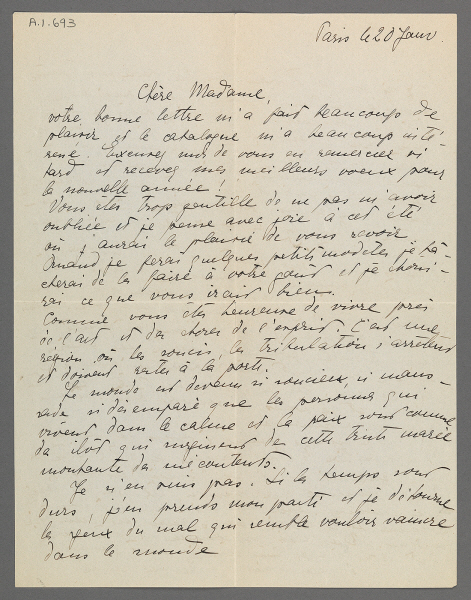 A.I.693
Paris le 20 Janv.
Chère Madame,
votre bonne lettre m'a fait beaucoup de
plaisir et le catalogue m'a beaucoup inté-
ressé. Excusez moi de vous en remercier si
tard et recevez mes meilleurs voeux pour
la nouvelle année !
Vous êtes trop gentille de ne pas m'avoir
oubliée et je pense avec joie à cet été
où j'aurai le plaisir de vous revoir.
Quand je ferai quelques petits modèles je tâ-
cherai de les faire à votre goût et je choisi-
rai ce que vous irait bien.
Comme vous êtes heureuse de vivre près
de l'art et des choses de l'esprit. C'est une
région où les soucis, les tribulations s'arrêtent
et doivent rester à la porte.
Le monde est devenu si soucieux, si maus-
sade si désemparé que les personnes qui
vivent dans le calme et la paix sont comme
des ilôts qui surgissent de cette triste marée
montante des mécontents.
Je n'en suis pas. Si les temps sont
durs, j'en prends mon parti et je détourne
les yeux du mal qui semble vouloir vaincre
dans le monde